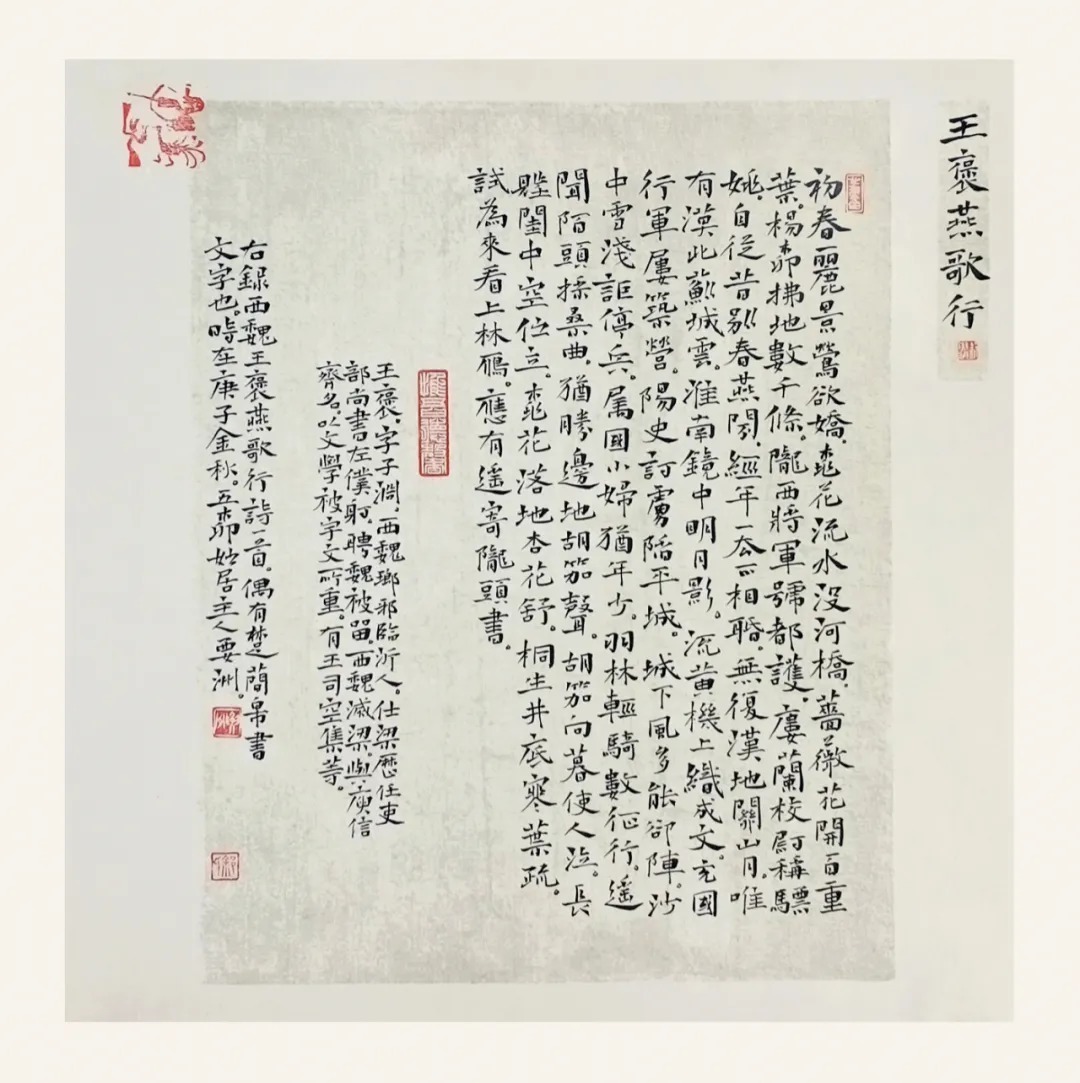 王褒燕歌行
初春麗景鶯欲嬌桃花流水没河橋薔薇花開百重
葉楊柳拂地數千條隴西將軍號都護屢蘭校尉稱驃
姚自從昔別春燕閞經年一去不相聞無復漢地關山月唯
有漠北薊城雲淮南鏡中明月影流黄機上織成文充國
行軍屢築營陽史討虜陷平城城下風多能卻陣沙
中雪淺詎停兵属國小婦猶年少羽林輕騎數征行遥
聞陌頭採桑曲猶勝邊地胡笳聲胡笳向暮使人泣長
閨中空佇立桃花落地杏花舒桐生井底寒葉疏
試為來看上林鴈應有遥寄隴頭書
王褒字子淵西魏瑯邪臨沂人仕梁歷任吏
部尚書左僕射聘魏被留西魏滅梁與庾信
齊名以文學被宇文所重有王司空集等
右録西魏王褒燕歌行詩一首偶有楚簡帛書
文字也時在庚子金秋五柳始居主人要洲